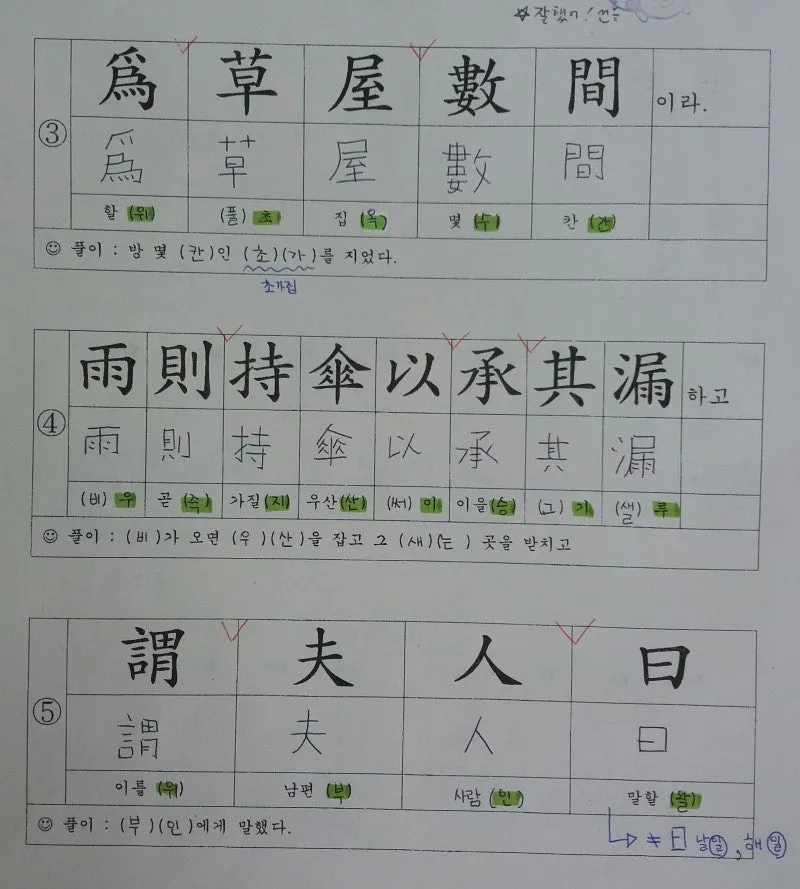 ☆ 잘했어!
爲 草 屋 數 間 이라.
③
爲 草 屋 數 間
할 (위) (풀) 초 집 (옥) 몇 (수) 칸 (간)
☺ 풀이 : 방 몇 (칸)인 (초)(가)를 지었다.
초가집
雨 則 持 傘 以 承 其 漏 하고
④
雨 則 持 傘 以 承 其 漏
(비) 우 곧 (즉) 가질 (지) 우산 (산) (써) 이 이을 (승) (그) 기 (샐) 루
☺ 풀이 : (비)가 오면 (우)(산)을 잡고 그 (새)(는) 곳을 받치고
謂 夫 人 曰
⑤
謂 夫 人 曰
이를 (위) 남편 (부) 사람 (인) 말할 (왈)
☺ 풀이 : (부)(인)에게 말했다.
≠ 日 날 일, 해 일